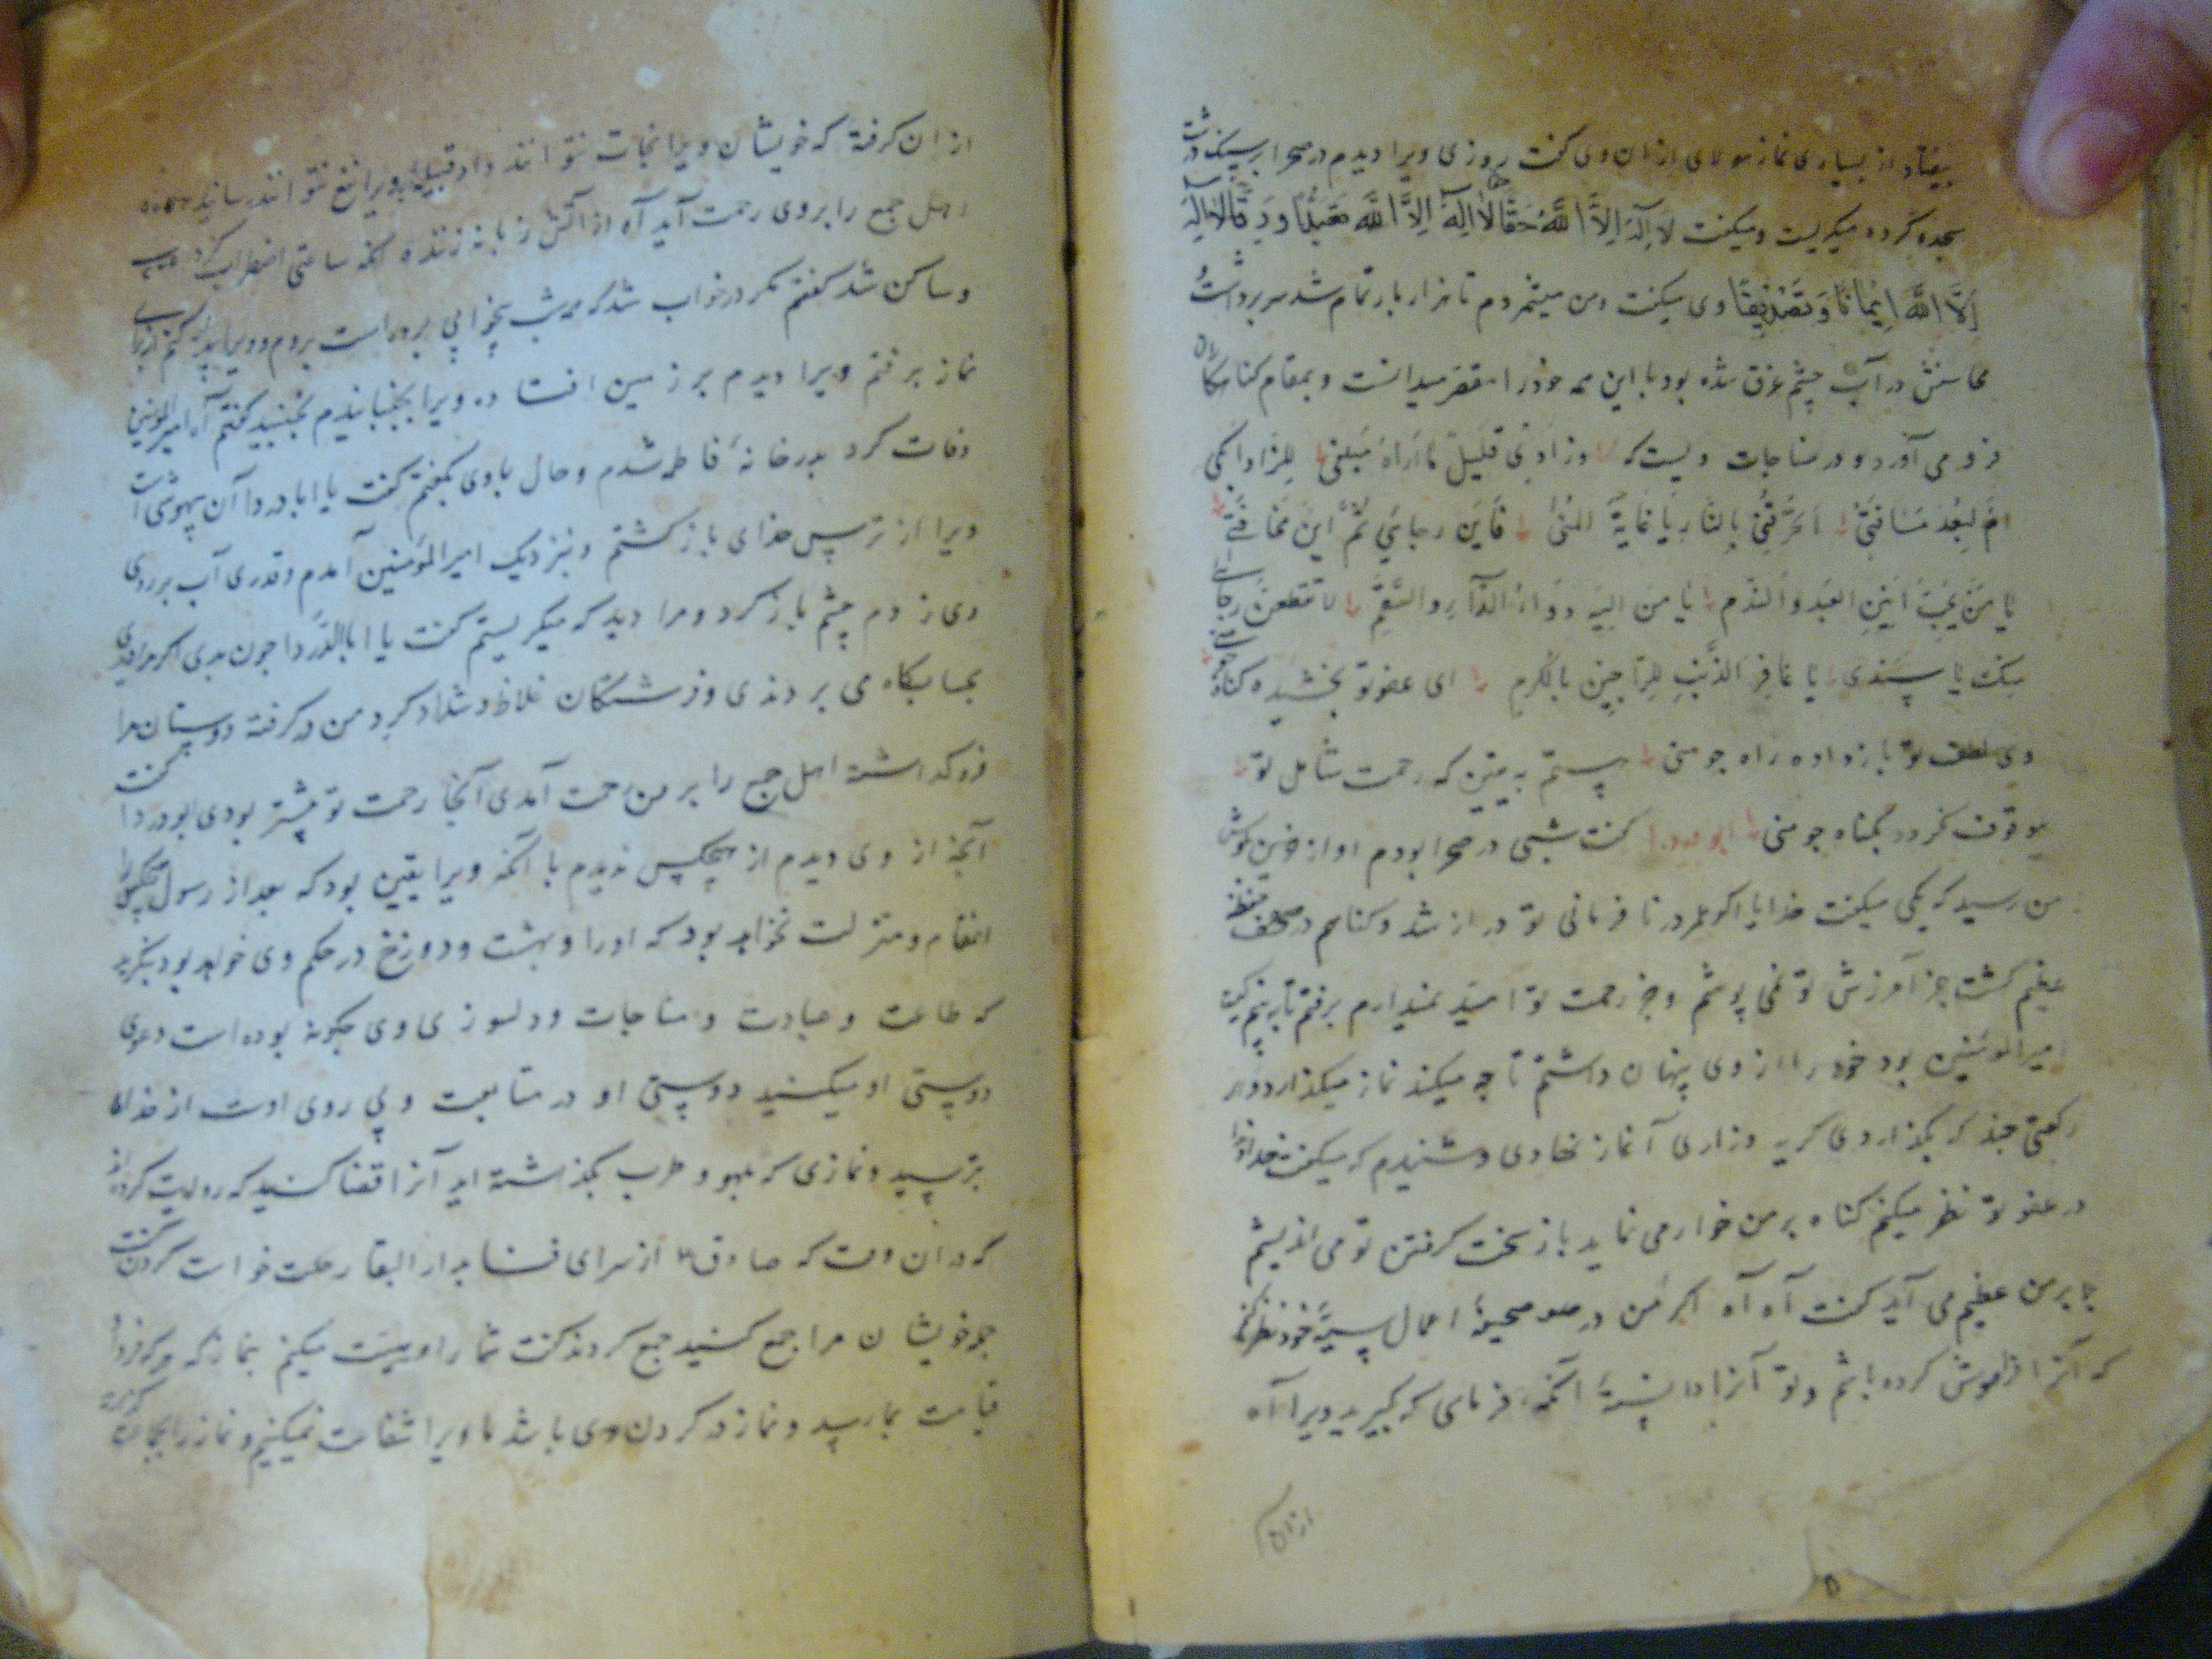 بیفتاد از بسیاری نماز مولای از ان وی گفت روزی ویرا دیدم در صحرا بر سنک درشت
سجده کرده میکریست و میکفت لا اِلٰهَ اِلاَّ اللّٰهُ حَقًّا لا اِلٰهَ اِلاَّ اللّٰه تَعَبُّدًا وَ رِقًّا لا اِلٰهَ
اِلاَّ اللّٰه اِیمٰانًا وَ تَصْدِیقًا وی میکفت و من میشمردم تا هزار بار تمام شد سر برداشت
محاسنش در آب چشم غرق شده بود با این همه خود را مقصر میدانست و بمقام کناهکاران
فرو می آورد و در مناجات ویست که وزادی قلیل ما اراه مبلغی للزاد ابکی
ام لبعد مسافتی اتحرقنی بالنار یا غایة المنی فاین رجائی ثم این مخافتی
یا من یجب انین العبد و الندم یا من الیه دواء الداء و السقم لا تقطعن رجائی
منک یا سندی یا غافر الذنب للراجین بالکرم ای عفو تو بخشیده کناه چو منی
وی لطف تو باز داده راه چو منی پستم به یقین که رحمت شامل تو
موقوف نکردد بکناه چو منی ابو دردا گفت شبی در صحرا بودم اواز حزین بکوش
من رسید که یکی میکفت خدایا اکر عمر در نا فرمانی تو دراز شد و کناهم در صحف حفظه
عظیم کشت جز آمرزش تو نمی پوشم و جز رحمت تو امید نمیدارم برفتم تا ببینم کیست
امیر المؤمنین بود خود را از وی پنهان داشتم تا چه میکند نماز میکذارد و
رکعتی چند که بکذاردی کریه و زاری آغاز نهادی و شنیدم که میکفت خداوندا
در عفو تو نظر میکنم کناه بر من خوار می نماید باز سخت کرفتن تو می اندیشم
بر من عظیم می آید گفت آه آه اکر من در صحیفهٔ اعمال سیئهٔ خود نظر کنم
که آنرا فراموش کرده باشم و تو آنرا دانستهٔ آنکه فرمای که بکیرید ویرا آه
ازان
از ان کرفتهٔ که خویشان ویرا نجات نتوانند داد و قبیله ویرا نفع نتوانند رسانید
اهل جمع را بر وی رحمت آید آه از آتش زبانه زننده آنکه ساعتی اضطراب کرد
و ساکن شد گفتم مکر در خواب شد که همه شب بیخوابی برده است بروم و ویرا بیدار کنم از برای
نماز برفتم ویرا دیدم بر زمین افتاده ویرا بجنبانیدم نجنبید گفتم آه امیر المؤمنین
وفات کرد بدر خانهٔ فاطمه شدم و حال باوی بگفتم گفت یا ابا دردا آن بیهوشی است
ویرا از ترس خدای باز کشتم و بنزدیک امیر المؤمنین آمدم و قدری آب بر روی
وی زدم چشم باز کرد و مرا دید که میکریستم گفت یا ابا الدردا چون بدی اکر مرا دیدی
بحسابکاه می بردندی و فرشتکان غلاظ و شداد کرد من در کرفته دوستان مرا
فرو کداشته اهل جمع را بر من رحمت آمدی آنجا رحمت تو بیشتر بودی ابو دردا گفت
آنچه از وی دیدم از هیچکس ندیدم با آنکه ویرا یقین بود که بعد از رسول هیچکس را
انمقام و منزلت نخواهد بود که اورا و بهشت و دوزخ در حکم وی خواهد بود بنکرید
که طاعت و عبادت و مناجات و دلسوزی وی چکونه بوده است دعوی
دوستی او میکنید دوستی او در متابعت و پی روی اوست از خدای
بترسید و نمازی که بلهو و طرب بکذاشته اید آنرا قضا کنید که روایت کرده اند
که در ان وقت که صادق ع از سرای فنا بدار البقا رحلت خواست کردن گفت
جمع خویشان مرا جمع کنید جمع کردند گفت شما را وصیت میکنم بنماز که هر که فردا
قیامت بما رسد و نماز نه کردن وی باشد ما ویرا شفاعت نمیکنیم و نماز را بجای